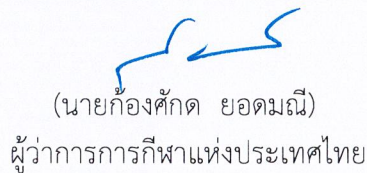 (นายก้องศักด ยอดมณี)
ผู้ว่าการการกีฬาแห่งประเทศไทย